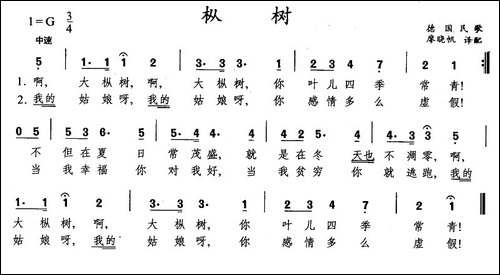 枞 树
1=G 3/4 德国民歌
中速 廖晓帆 译配
5 | 1· 1 1 2 | 3· 3 3· 3 | 2 3 4 7 | 2 1 :‖
1. 啊, 大 枞 树, 啊, 大 枞 树, 你 叶 儿 四 季 常 青!
2. 我的 姑 娘 呀, 我的 姑 娘 呀, 你 感 情 多 么 虚 假!
0 5 | 5 3 6· 5 | 5· 4 4 4 | 4 2 5· 4 | 4· 3 3 5
不 但 在 夏 日 常 茂 盛, 就 是 在 冬 天也 不 凋 零, 啊,
当 我 幸 福 你 对 我 好, 当 我 贫 穷 你 就 逃 跑, 我的
1· 1 1 2 | 3· 3 3· 3 | 2 3 4 7 | 2 1
大 枞 树, 啊, 大 枞 树, 你 叶 儿 四 季 常 青!
姑 娘 呀, 我的 姑 娘 呀, 你 感 情 多 么 虚 假!